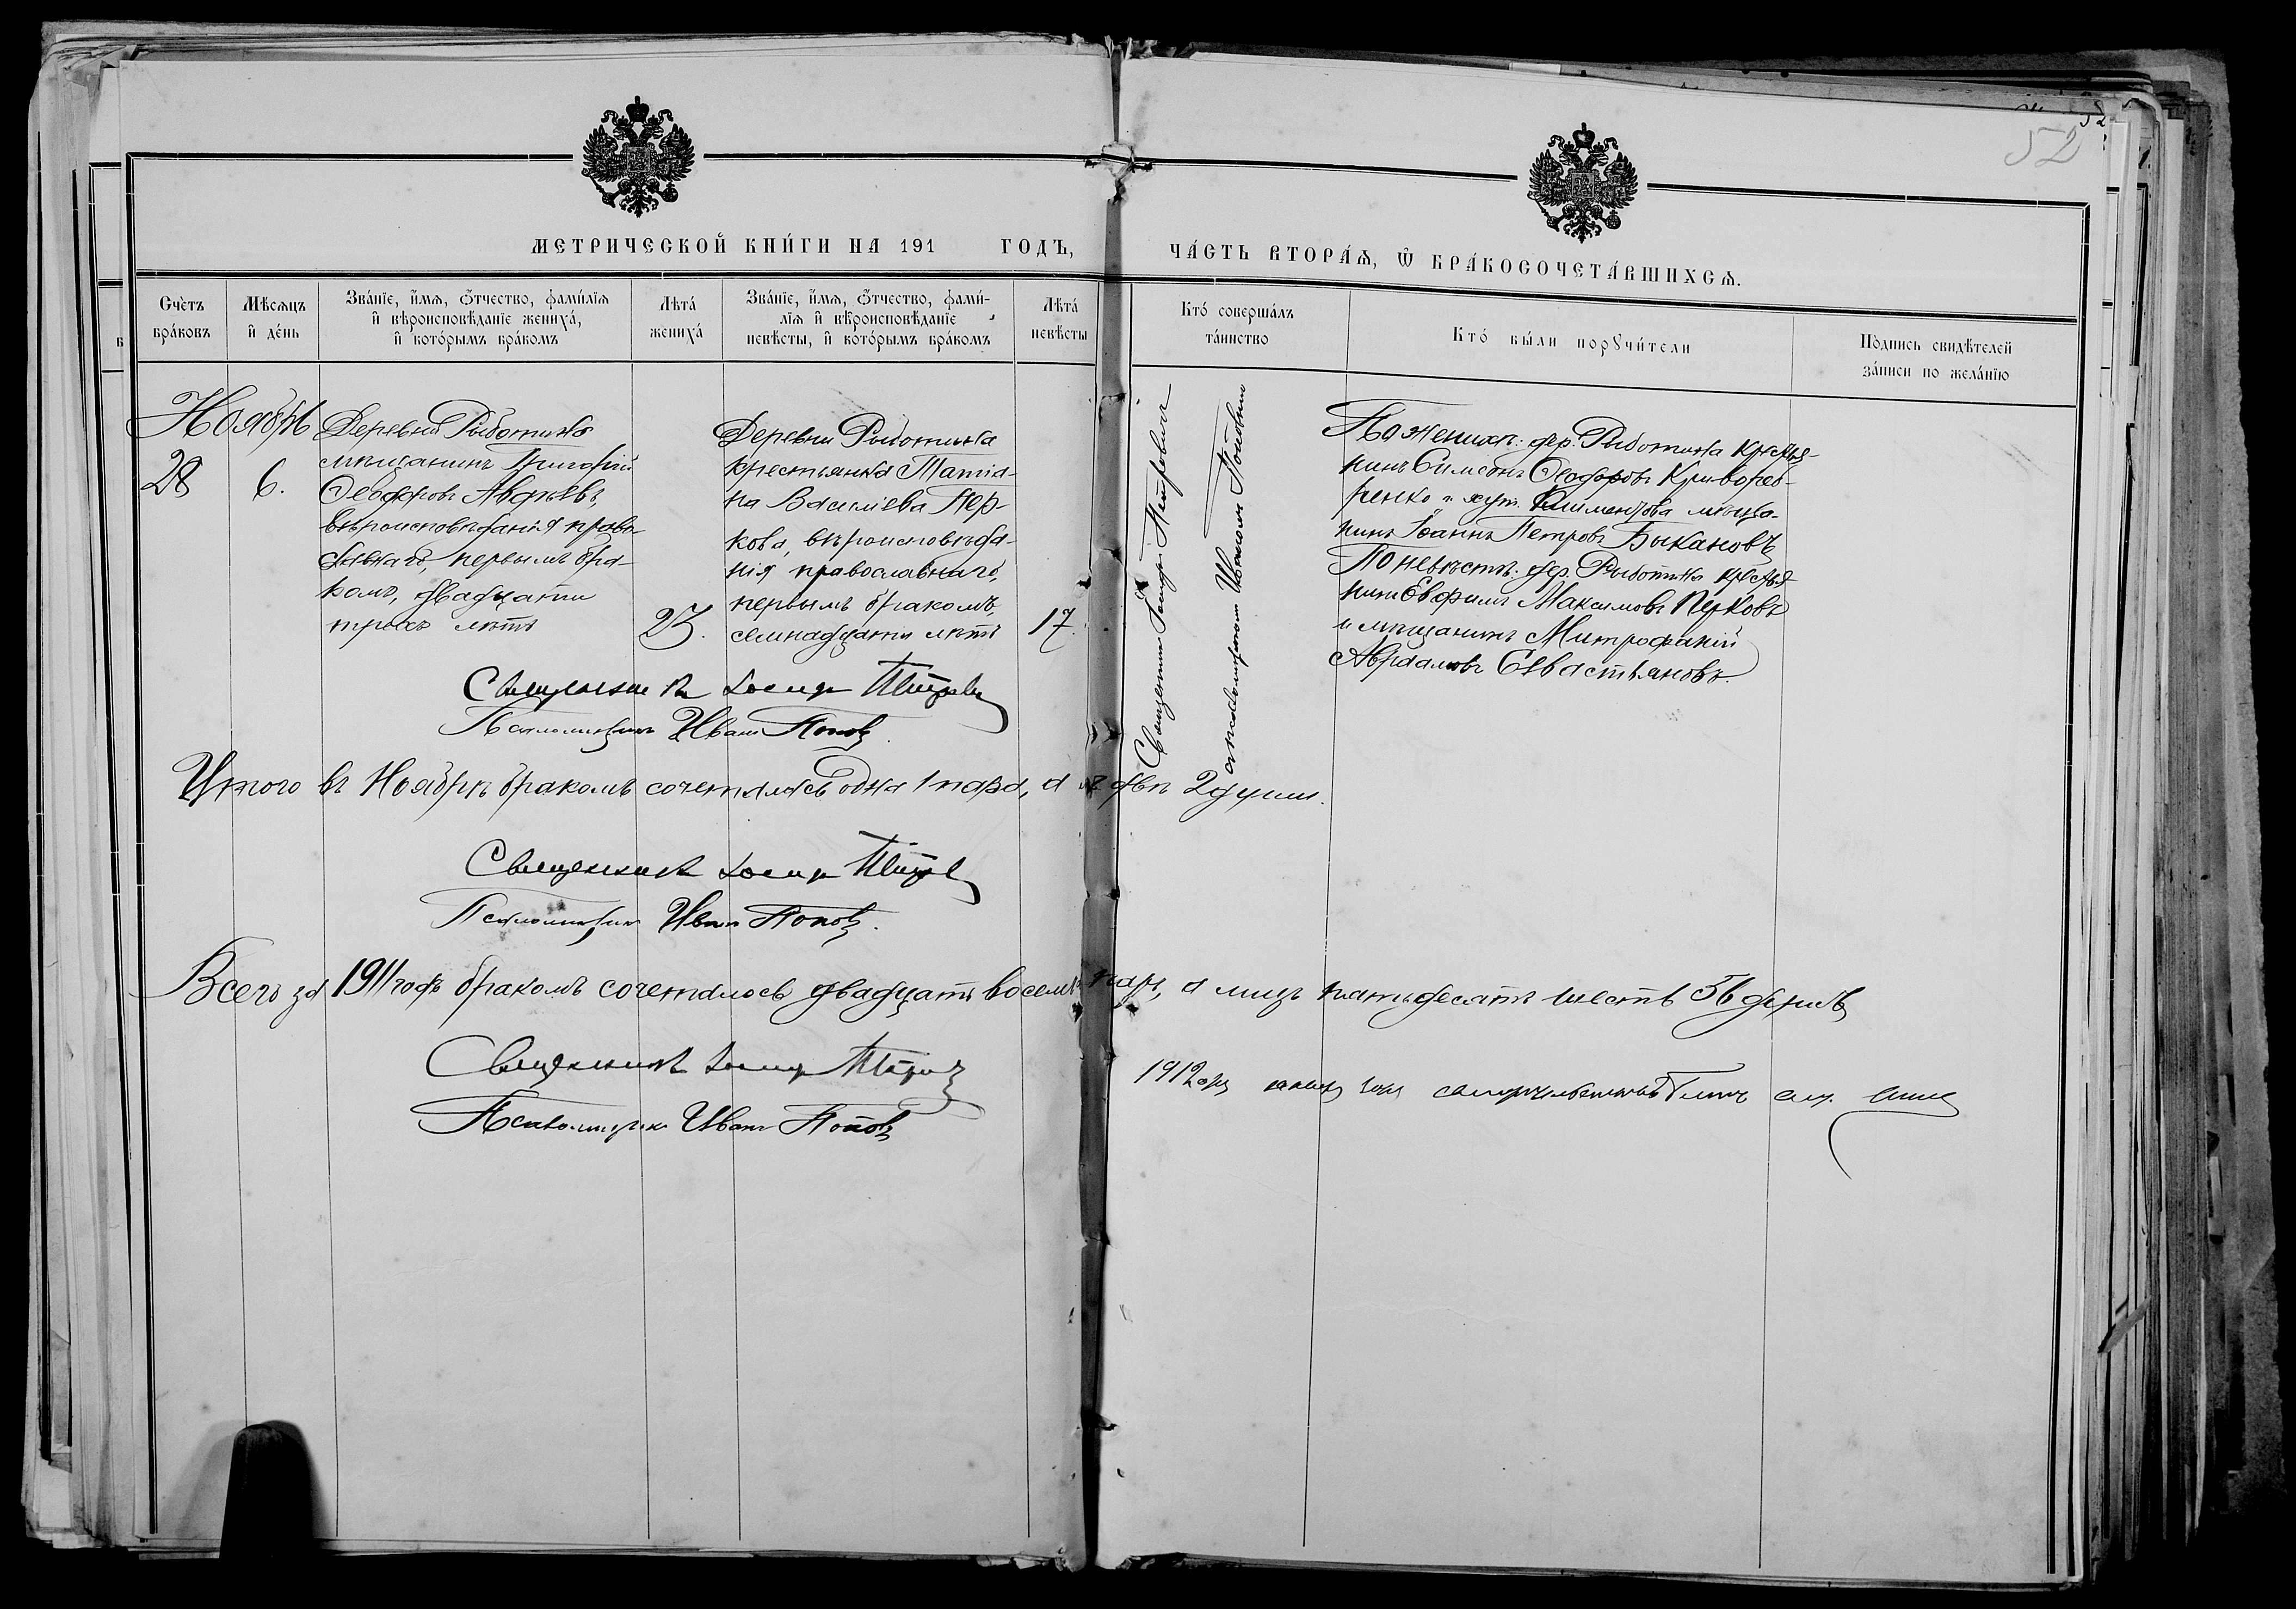 52
МЕТРИЧЕСКОЙ КНИ́ГИ НА 191 ГОДЪ,
ЧА́СТЬ ВТОРА́Ѧ, Ѿ БРА́КОСОЧЕТА́ВШИХСѦ.
Сче́тъ
бра́ковъ
Мѣсѧцъ
и҆ де́нь
Зва́нїе, и҆́мѧ, ѻ҆́тчество, фами́лїѧ
и҆ вѣроисповѣ́данїе жениха́,
и҆ кото́рымъ бра́комъ
Лѣта́
жениха́
Зва́нїе, и҆́мѧ, ѻ҆́тчество, фами́-
лїѧ и҆ вѣроисповѣ́данїе
невѣ́сты, и҆ кото́рымъ бра́комъ
Лѣта́
невѣ́сты
Кто́ соверша́лъ
та́инство
Кто́ бы́ли порꙋчи́тели
По́дпись свидѣ́телей
за́писи по жела́нїю
Ноябрь
28
6.
Деревни Рыботина
мѣщанинъ Григорій
Ѳеодоровъ Авдѣевъ,
вѣроисповѣданія право-
славнаго, первымъ бра-
комъ, двадцати
трехъ лѣтъ
23.
Деревни Рыботина
крестьянка Татіа-
на Василіева Пер-
кова, вѣроисповѣда-
нія православнаго,
первымъ бракомъ,
семнадцати лѣтъ
17.
Священникъ Іосифъ Петровичъ
съ псаломщикомъ Иваномъ Поповымъ
По женихѣ: дер. Рыботина крестья-
нинъ Симеонъ Ѳеодоровъ Криворед-
ренко и хут. Климентова мѣща-
нинъ Іоаннъ Петровъ Быкановъ
По невѣстѣ: дер. Рыботина крестья-
нинъ Евфимъ Максимовъ Перковъ
и мѣщанинъ Митрофаній
Авраамовъ Севастьяновъ.
Священникъ Іосифъ Петров
Псаломщикъ Иванъ Поповъ.
Итого въ Ноябрѣ бракомъ сочеталась одна 1 пара, а двѣ 2 души.
Священникъ Іосифъ Петров
Псаломщикъ Иванъ Поповъ.
Всего за 1911 годъ бракомъ сочеталось двадцать восемь паръ, а лицъ пятьдесятъ шесть 56 душъ
Священникъ Іосифъ Петров
Псаломщикъ Иванъ Поповъ
1912 года